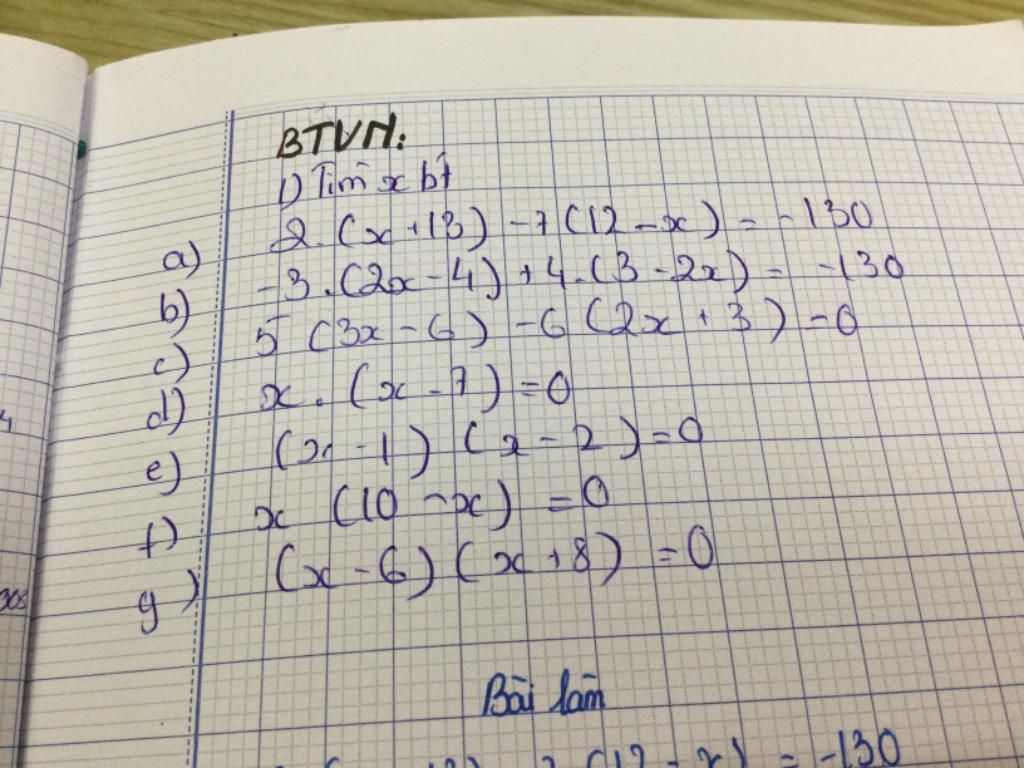 BTVN:
1) Tìm x bt
a) 2.(x+13) -7(12-x) = -130
b) -3.(2x-4)+4.(3-2x)= -130
c) 5(3x-6)-6(2x+3)=0
d) x.(x-7)=0
e) (x-1)(x-2)=0
f) x(10-x)=0
g) (x-6)(x+8)=0
Bài làm
(12-x) = -130